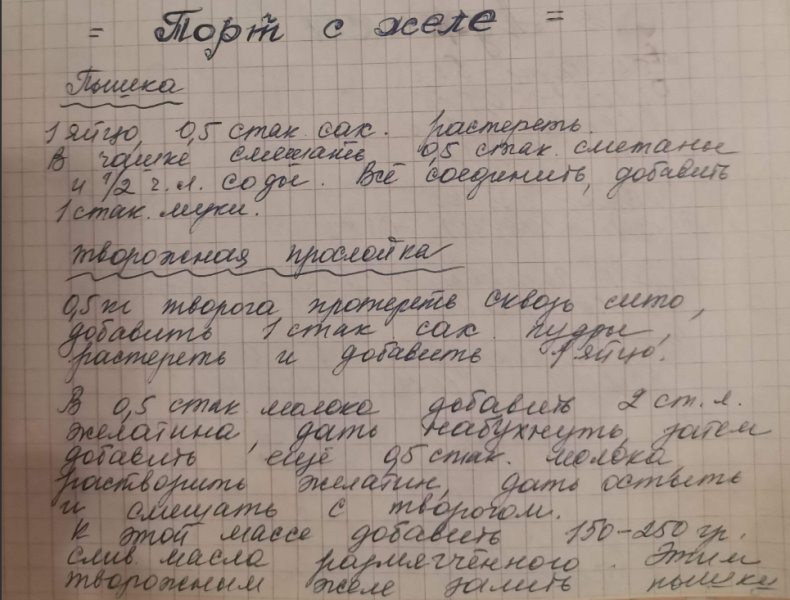 = Торт с желе =
Пышка
1 яйцо, 0,5 стак. сак. растереть.
В чашке смешать 0,5 стак. сметаны
и 1/2 ч.л. соды. Всё соединить, добавить
1 стак. муки.
творожная прослойка
0,5 кг творога протереть сквозь сито,
добавить 1 стак сак. пудры,
растереть и добавить 1 яйцо.
В 0,5 стак молока добавить 2 ст.л.
желатина, дать набухнуть, затем
добавить ещё 0,5 стак. молока
растворить желатин, дать остыть
и смешать с творогом.
К этой массе добавить 150-250 гр.
слив. масла размягчённого. Этим
творожным желе залить пышки